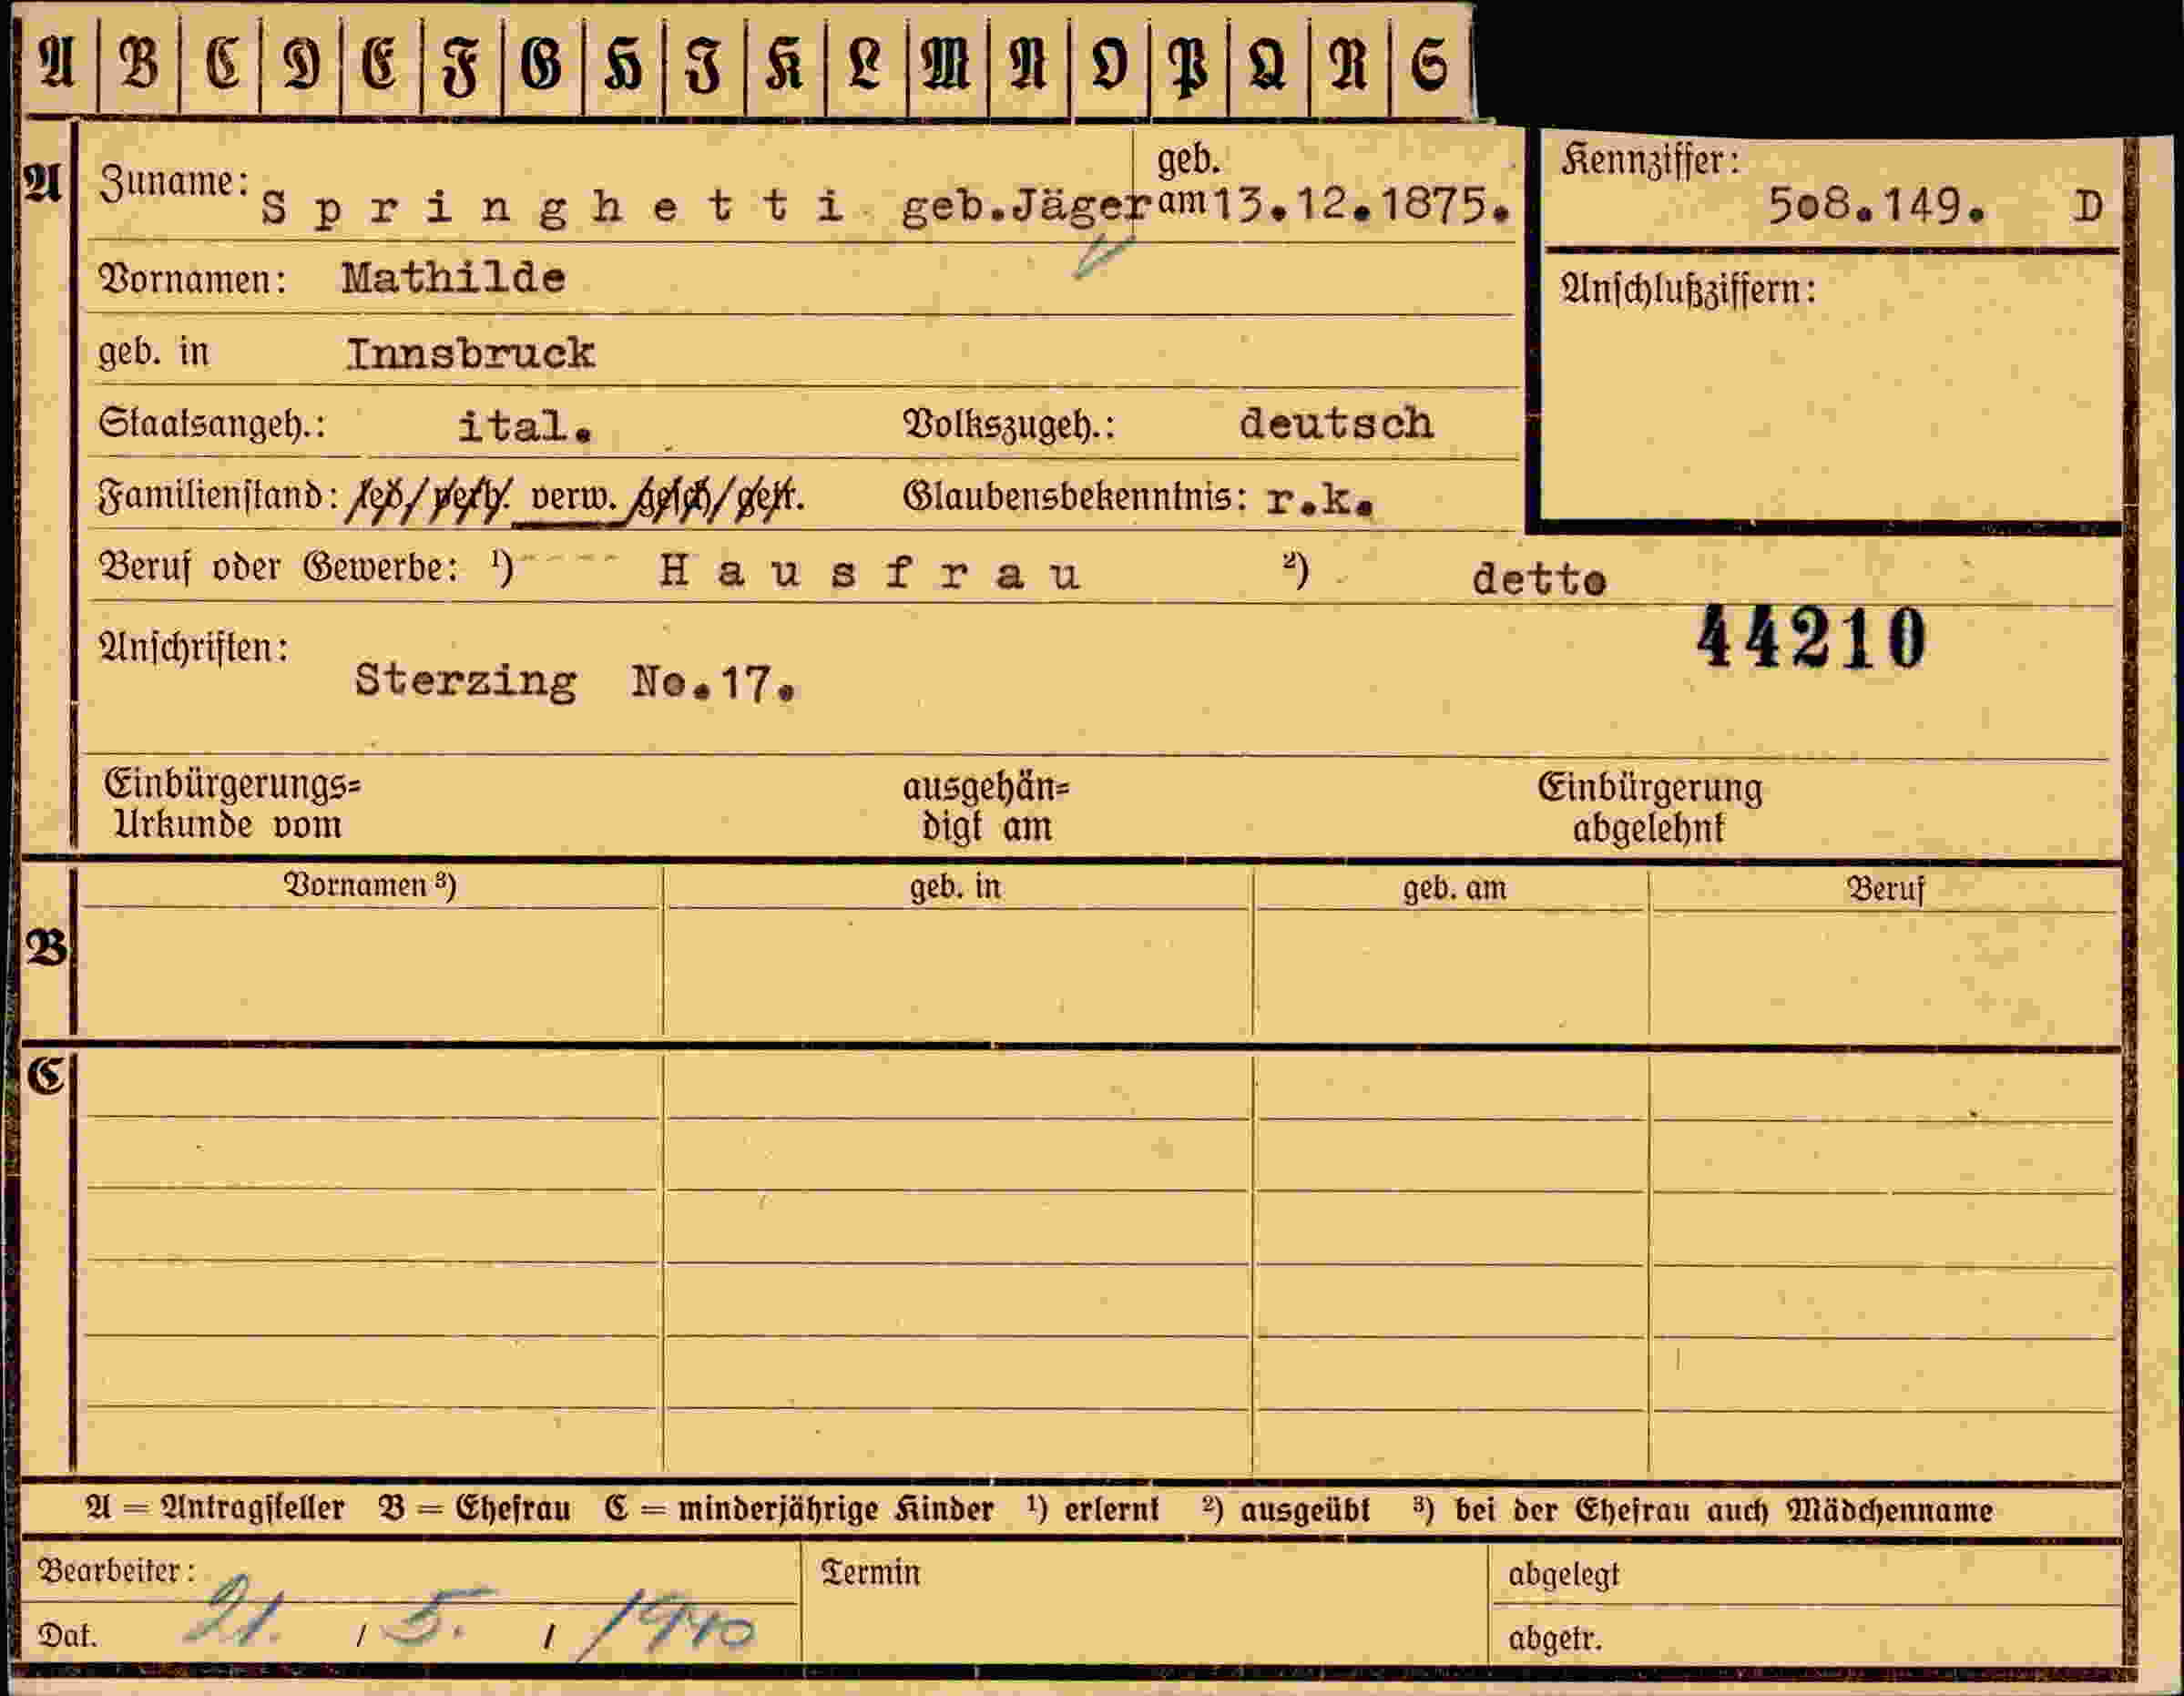 A B C D E F G H J K L M N O P Q R S
A Zuname: Springhetti geb.Jäger geb. am 13.12.1875.
Kennziffer: 508.149. D
Vornamen: Mathilde
Anschlußziffern:
geb. in Innsbruck
Staatsangeh.: ital. Volkszugeh.: deutsch
Familienstand: led/verh. verw. gesch/getr. Glaubensbekenntnis: r.k.
Beruf oder Gewerbe: ¹) ---- Hausfrau ²) detto
44210
Anschriften: Sterzing No.17.
Einbürgerungs= ausgehän= Einbürgerung
Urkunde vom digt am abgelehnt
Vornamen ³) geb. in geb. am Beruf
B
C
A = Antragsteller B = Ehefrau C = minderjährige Kinder ¹) erlernt ²) ausgeübt ³) bei der Ehefrau auch Mädchenname
Bearbeiter: Termin abgelegt
Dat. 21. / 5. / 1940 abgetr.